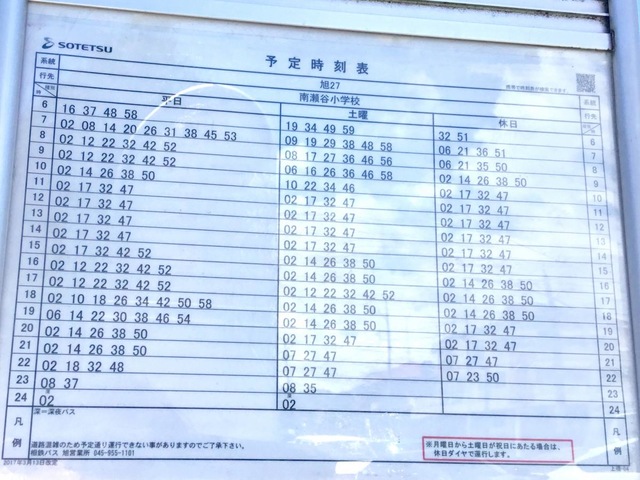 SOTETSU
予定時刻表
系統 旭27 系統
行先 南瀬谷小学校 行先
時 種別 平日 土曜 休日
6 16 37 48 58 19 34 49 59 32 51 6
7 02 08 14 20 26 31 38 45 53 09 19 29 38 48 58 06 21 36 51 7
8 02 12 22 32 42 52 08 17 27 36 46 56 06 21 35 50 8
9 02 12 22 32 42 52 06 16 26 36 46 58 02 14 26 38 50 9
10 02 14 26 38 50 10 22 34 46 02 17 32 47 10
11 02 17 32 47 02 17 32 47 02 17 32 47 11
12 02 17 32 47 02 17 32 47 02 17 32 47 12
13 02 17 32 47 02 17 32 47 02 17 32 47 13
14 02 17 32 47 02 17 32 47 02 17 32 47 14
15 02 17 32 42 52 02 14 26 38 50 02 17 32 47 15
16 02 12 22 32 42 52 02 14 26 38 50 02 14 26 38 50 16
17 02 12 22 32 42 52 02 12 22 32 42 52 02 14 26 38 50 17
18 02 10 18 26 34 42 50 58 02 14 26 38 50 02 14 26 38 50 18
19 06 14 22 30 38 46 54 02 14 26 38 50 02 17 32 47 19
20 02 14 26 38 50 02 17 32 47 02 17 32 47 20
21 02 14 26 38 50 07 27 47 07 27 47 21
22 02 18 32 48 07 27 47 07 23 50 22
23 08 37 08 35 23
24 深 02 深 02 24
凡例 深=深夜バス 凡例
道路混雑のため予定通り運行できない事がありますのでご了承下さい。
相鉄バス 旭営業所 045-955-1101
※月曜日から土曜日が祝日にあたる場合は、
休日ダイヤで運行します。
2017年3月13日改定